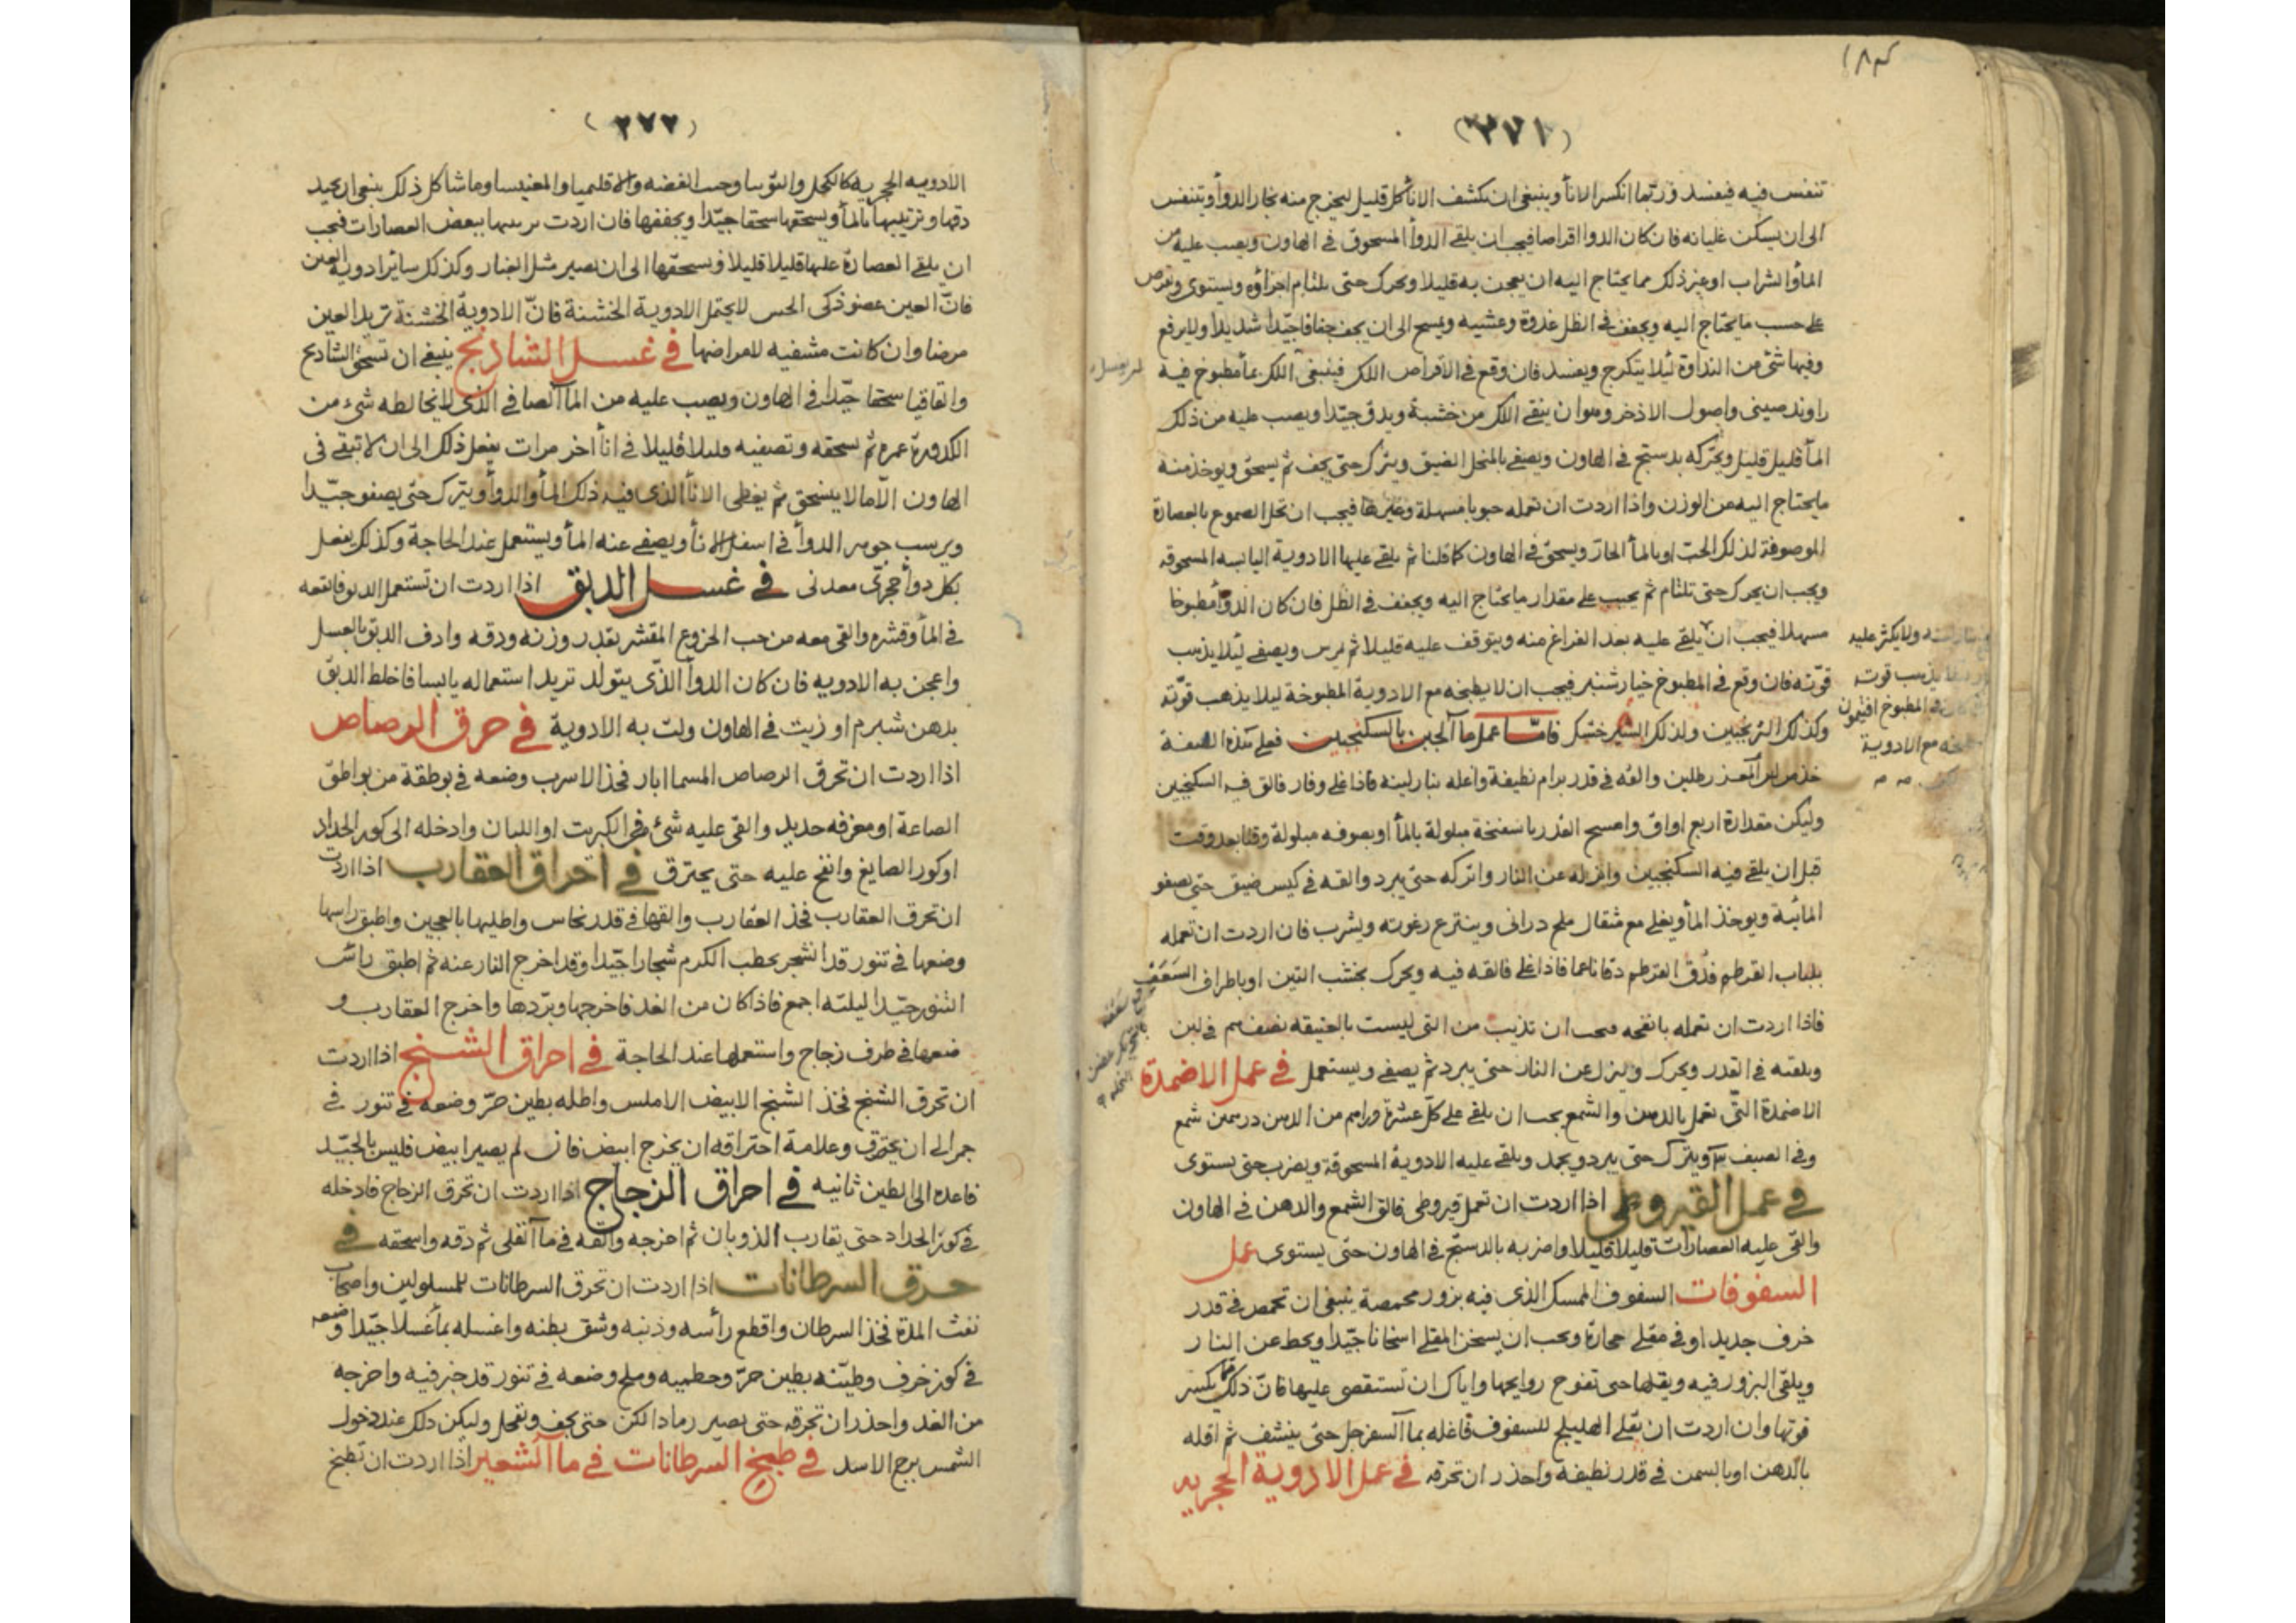 ١٨٣
(٢٧١)
تنفس فيه فيفسد وربما انكسر الاناء وينبغي ان تكشف الاناء كل قليل ليخرج منه بخار الدواء ويتنفس
الى ان يسكن غليانه فان كان الدوا اقراصا فيجب ان يلقى الدواء المسحوق في الهاون ويصب عليه من
الماء والشراب او غير ذلك مما يحتاج اليه ان يعجن به قليلا ويحرك حتى يلتام اجزاؤه ويستوى ويقرص
على حسب ما يحتاج اليه ويجفف في الظل غدوة وعشيه ويمسح الى ان يجف جفافا جيدا شديدا ولا يرفع
وفيها شئ من النداوة ليلا يتكرج ويفسد فان وقع في الاقراص اللك فينبغي اللك بماء مطبوخ فيه
راوند صيني واصول الاذخر وهو ان ينقى اللك من خشبة ويدق جيدا ويصب عليه من ذلك
الماء قليل قليل ويحركه بدستج في الهاون ويصفى بالمنخل الضيق ويترك حتى يجف ثم يسحق ويوخذ منه
ما يحتاج اليه من الوزن واذا اردت ان تعمله حبوبا مسهلة وغيرها فيجب ان تحل الصموغ بالعصارة
الموصوفة لذلك الحب او بالماء الحار ويسحق في الهاون كما قلنا ثم يلقى عليها الادوية اليابسه المسحوقه
ويجب ان يحرك حتى تلتام ثم يحبب على مقدار ما يحتاج اليه ويجفف في الظل فان كان الدواء مطبوخا
مسهلا فيجب ان يلقى عليه بعد الفراغ منه ويتوقف عليه قليلا ثم يمرس ويصفى ليلا يذهب
قوته فان وقع في المطبوخ خيار شنبر فيجب ان لا يطبخه مع الادوية المطبوخة ليلا يذهب قوته
وكذلك الترنجبين وكذلك الشير خشك فاما عمل ماء الجبن بالسكنجبين فعلى هذه الصفة
خذ من لبن المعز رطلين والقه في قدر برام نظيفة واغله بنار لينه فاذا غلى وفار فالق فيه السكنجبين
وليكن مقداره اربع اواق وامسح القدر باسفنجة مبلولة بالماء او بصوفه مبلولة وقتا بعد وقت
قبل ان يلقى فيه السكنجبين وانزله عن النار واتركه حتى يبرد والقه في كيس ضيق حتى يصفو
المائية ويوخذ الماء ويغلى مع مثقال ملح دراني وينزع رغوته ويشرب فان اردت ان تعمله
بلباب القرطم فدق القرطم دقا ناعما فاذا غلى فالقه فيه ويحرك بخشب التين او باطراف السعف
فاذا اردت ان تعمله بانفحه فيجب ان تذيب من التى ليست بالعتيقه نصف درهم في لبن
ويلقيه في القدر ويحرك وينزل عن النار حتى يبرد ثم يصفى ويستعمل في عمل الاضمدة
الاضمدة التي تعمل بالدهن والشمع يجب ان يلقى على كل عشرة دراهم من الدهن درهمين شمع
وفي الصيف ويترك حتى يبرد ويجمد ويلقى عليه الادوية المسحوقة ويضرب حتى يستوى
في عمل القيروطي اذا اردت ان تعمل قيروطى فالق الشمع والدهن في الهاون
والقى عليه العصارات قليلا قليلا واضربه بالدستج في الهاون حتى يستوى عمل
السفوفات السفوف الممسك الذى فيه بزور محمصة ينبغى ان تحمص في قدر
خزف جديد او في مقلى حجارة ويجب ان يسخن المقلى اسخانا جيدا ويحط عن النار
ويلقى البزور فيه ويقلبها حتى تفوح روايحها واياك ان تستقصى عليها فان ذلك مما يكسر
قوتها وان اردت ان تقلى الهليلج للسفوف فاغله بماء السفرجل حتى ينشف ثم اقله
بالدهن او بالسمن في قدر نظيفة واحذر ان تحرقه في عمل الادوية الحجريه
ولا يكثر عليه
يذهب قوته
المطبوخ افتيمون
مع الادوية
(٢٧٢)
الادويه الحجريه كالكحل والتوتيا وخبث الفضه والاقليميا والمغنيسا وما شاكل ذلك ينبغى ان يجيد
دقها وتربيبها بالماء ويسحقها سحقا جيدا ويجففها فان اردت تربيبها ببعض العصارات فيجب
ان يلقى العصارة عليها قليلا قليلا ويسحقها الى ان تصير مثل الغبار وكذلك سائر ادوية العين
فان العين عضو ذكى الحس لا يحتمل الادوية الخشنة فان الادوية الخشنة تزيد العين
مرضا وان كانت مشفيه لامراضها في غسل الشاذنج ينبغى ان تسحق الشاذنج
واقاقيا سحقا جيدا في الهاون ويصب عليه من الماء الصافي الذى لا يخالطه شيء من
الكدورة غمره ثم يسحقه وتصفيه قليلا قليلا في اناء اخر مرات يفعل ذلك الى ان لا تبقى في
الهاون الا ما لا ينسحق ثم يغطى الاناء الذى فيه ذلك الماء والدواء ويترك حتى يصفو جيدا
ويرسب جوهر الدواء في اسفل الاناء ويصفى عنه الماء ويستعمل عند الحاجة وكذلك يفعل
بكل دواء حجرى معدنى في غسل الدبق اذا اردت ان تستعمل الدبق فانقعه
في الماء وقشره والقى معه من حب الخروع المقشر بقدر وزنه ودقه وادف الدبق بالعسل
واعجن به الادويه فان كان الدواء الذى يتولد تريد استعماله يابسا فاخلط الدبق
بدهن شبرم او زيت في الهاون ولت به الادوية في حرق الرصاص
اذا اردت ان تحرق الرصاص المسما ابار فخذ الاسرب وضعه في بوطقة من بواطق
الصاغة او مغرفه حديد والقى عليه شئ من الكبريت او اللبان وادخله الى كور الحداد
او كور الصايغ وانفخ عليه حتى يحترق في احراق العقارب اذا اردت
ان تحرق العقارب فخذ العقارب والقها في قدر نحاس واطليها بالعجين واطبق راسها
وضعها في تنور قد اشجر بحطب الكرم شجارا جيدا وقد اخرج النار عنه ثم اطبق رأس
التنور جيدا ليلته اجمع فاذا كان من الغد فاخرجها وبردها واخرج العقارب و
ضعها في ظرف زجاج واستعملها عند الحاجة في احراق الشنج اذا اردت
ان تحرق الشنج فخذ الشنج الابيض الاملس واطله بطين حر وضعه في تنور في
جمر الى ان يحترق وعلامة احتراقه ان يخرج ابيض فان لم يصير ابيض فليس بالجيد
فاعده الى الطين ثانيه في احراق الزجاج اذا اردت ان تحرق الزجاج فادخله
في كور الحداد حتى يقارب الذوبان ثم اخرجه والقه في ماء القلى ثم دقه واسحقه في
حرق السرطانات اذا اردت ان تحرق السرطانات للمسلولين واصحاب
نفث المدة فخذ السرطان واقطع رأسه وذنبه وشق بطنه واغسله بماء غسلا جيدا وضعه
في كوز خزف وطينه بطين حر وحطبيه وملح وضعه في تنور قد خبز فيه واخرجه
من الغد واحذر ان تحرقه حتى يصير رمادا لكن حتى يجف وتقحل وليكن ذلك عند دخول
الشمس برج الاسد في طبخ السرطانات في ماء الشعير اذا اردت ان تطبخ